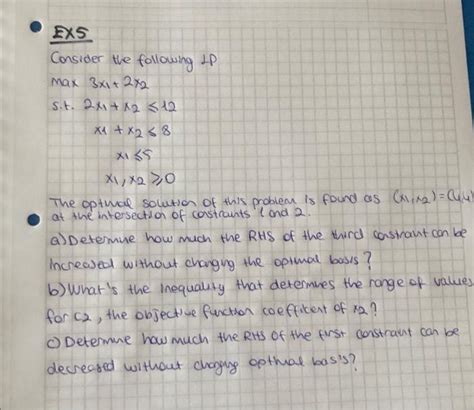 EX5
Consider the following LP
max 3x1 + 2x2
s.t. 2x1 + x2 ≤ 12
x1 + x2 ≤ 8
x1 ≤ 5
x1, x2 ≥ 0
The optimal solution of this problem is found as (x1,x2) = (4,4)
at the intersection of constraints 1 and 2.
a) Determine how much the RHS of the third constraint can be
increased without changing the optimal basis?
b) What's the inequality that determines the range of values
for c2, the objective function coefficient of x2?
c) Determine how much the RHS of the first constraint can be
decreased without changing optimal basis?